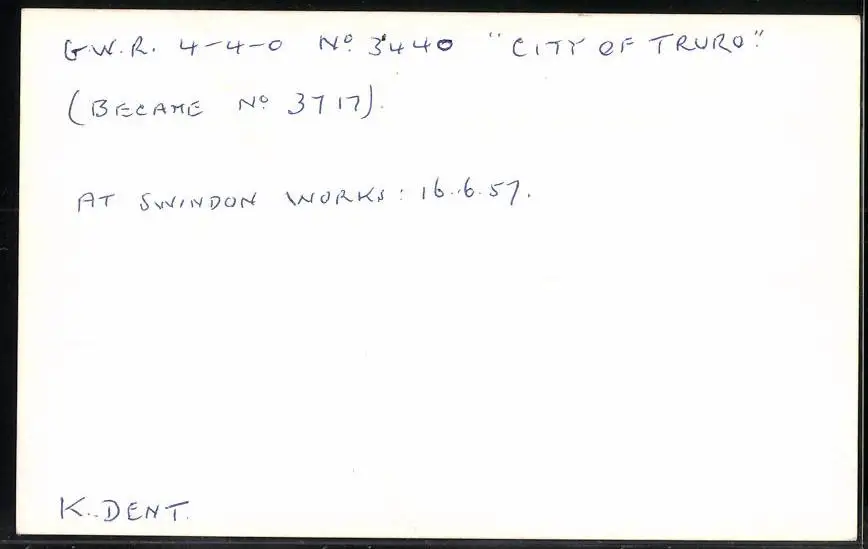 G.W.R. 4-4-0 Nº 3440 "CITY OF TRURO."
(BECAME Nº 3717).
AT SWINDON WORKS: 16.6.57.
K. DENT.